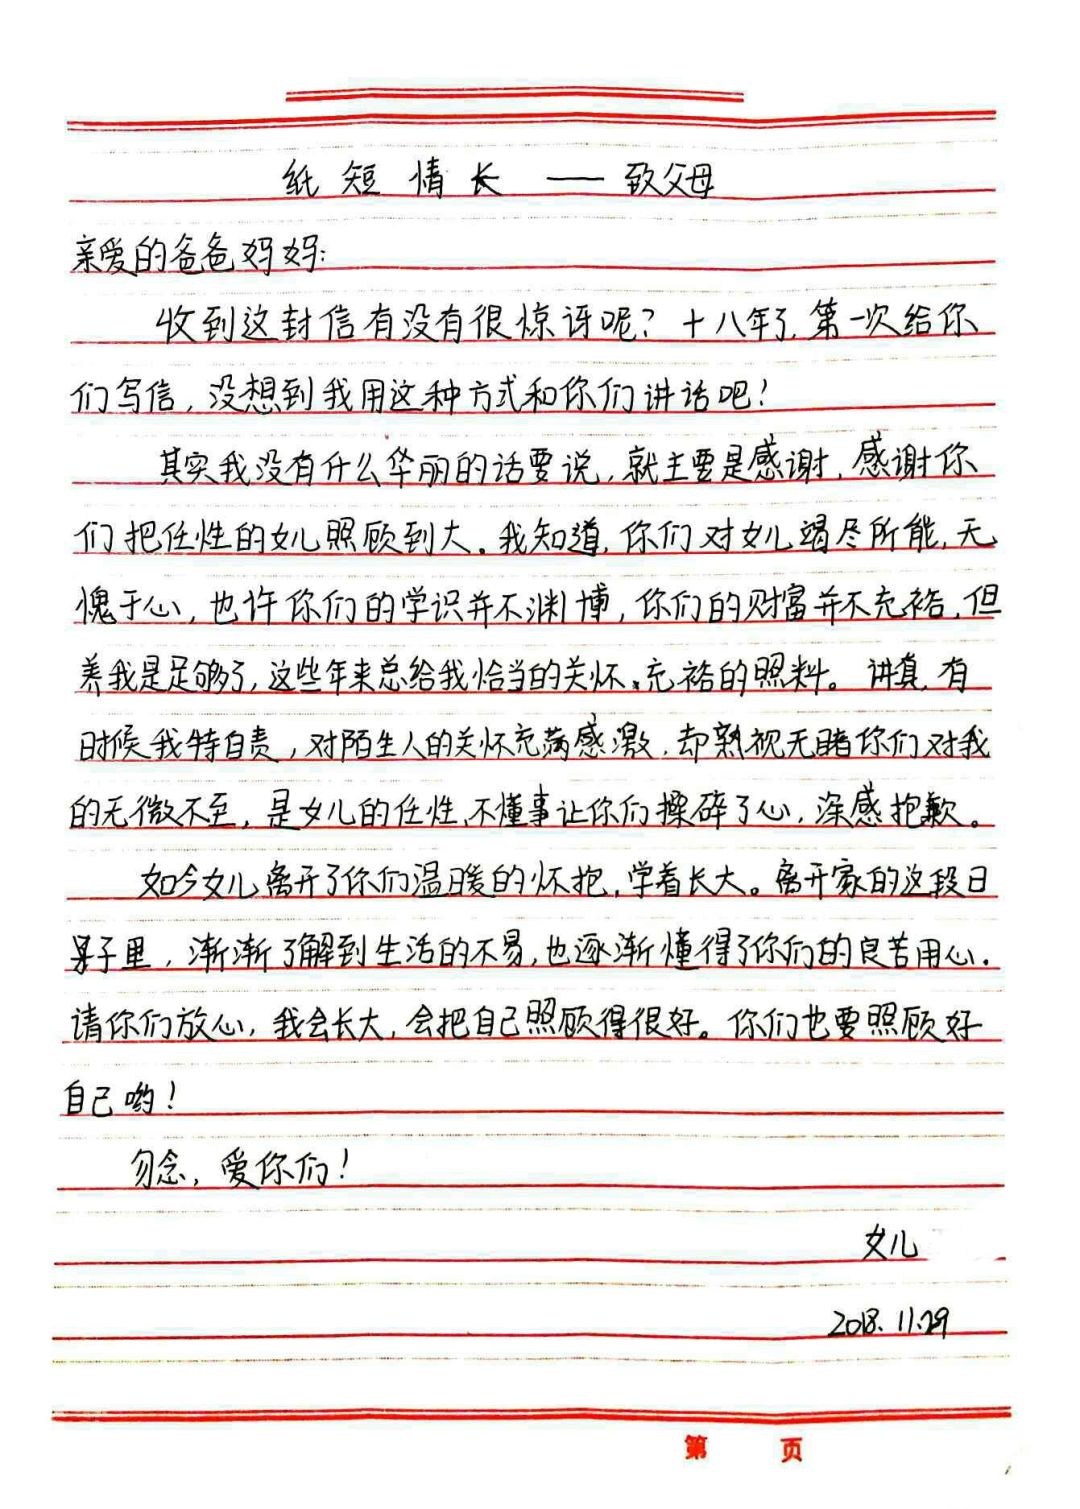 纸短情长 —— 致父母
亲爱的爸爸妈妈:
收到这封信有没有很惊讶呢? 十八年了,第一次给你
们写信,没想到我用这种方式和你们讲话吧!
其实我没有什么华丽的话要说,就主要是感谢,感谢你
们把任性的女儿照顾到大。我知道,你们对女儿竭尽所能,无
愧于心,也许你们的学识并不渊博,你们的财富并不充裕,但
养我是足够了,这些年来总给我恰当的关怀、充裕的照料。讲真,有
时候我特自责,对陌生人的关怀充满感激,却熟视无睹你们对我
的无微不至,是女儿的任性,不懂事让你们操碎了心,深感抱歉。
如今女儿离开了你们温暖的怀抱,学着长大。离开家的这段日
子里,渐渐了解到生活的不易,也逐渐懂得了你们的良苦用心。
请你们放心,我会长大,会把自己照顾得很好。你们也要照顾好
自己哟!
勿念,爱你们!
女儿
2018.11.29
第 页